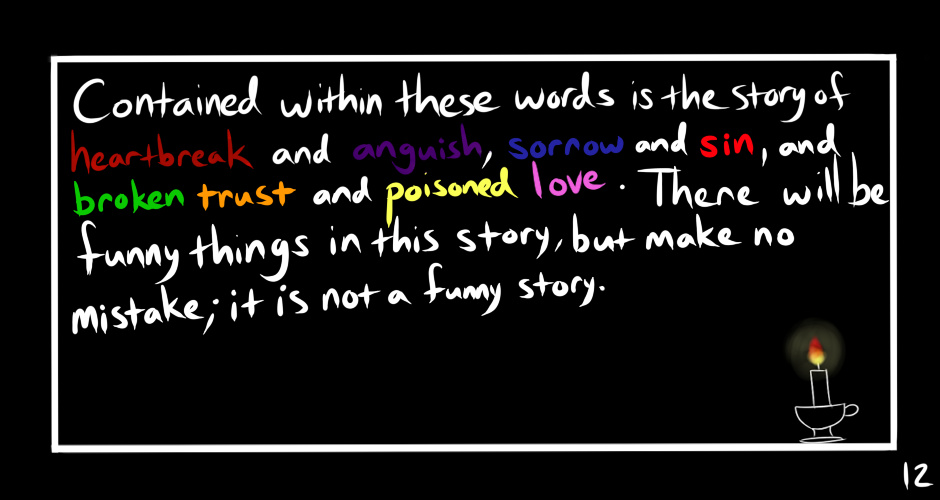 Contained within these words is the story of
heartbreak and anguish, sorrow and sin, and
broken trust and poisoned love. There will be
funny things in this story, but make no
mistake; it is not a funny story.
12